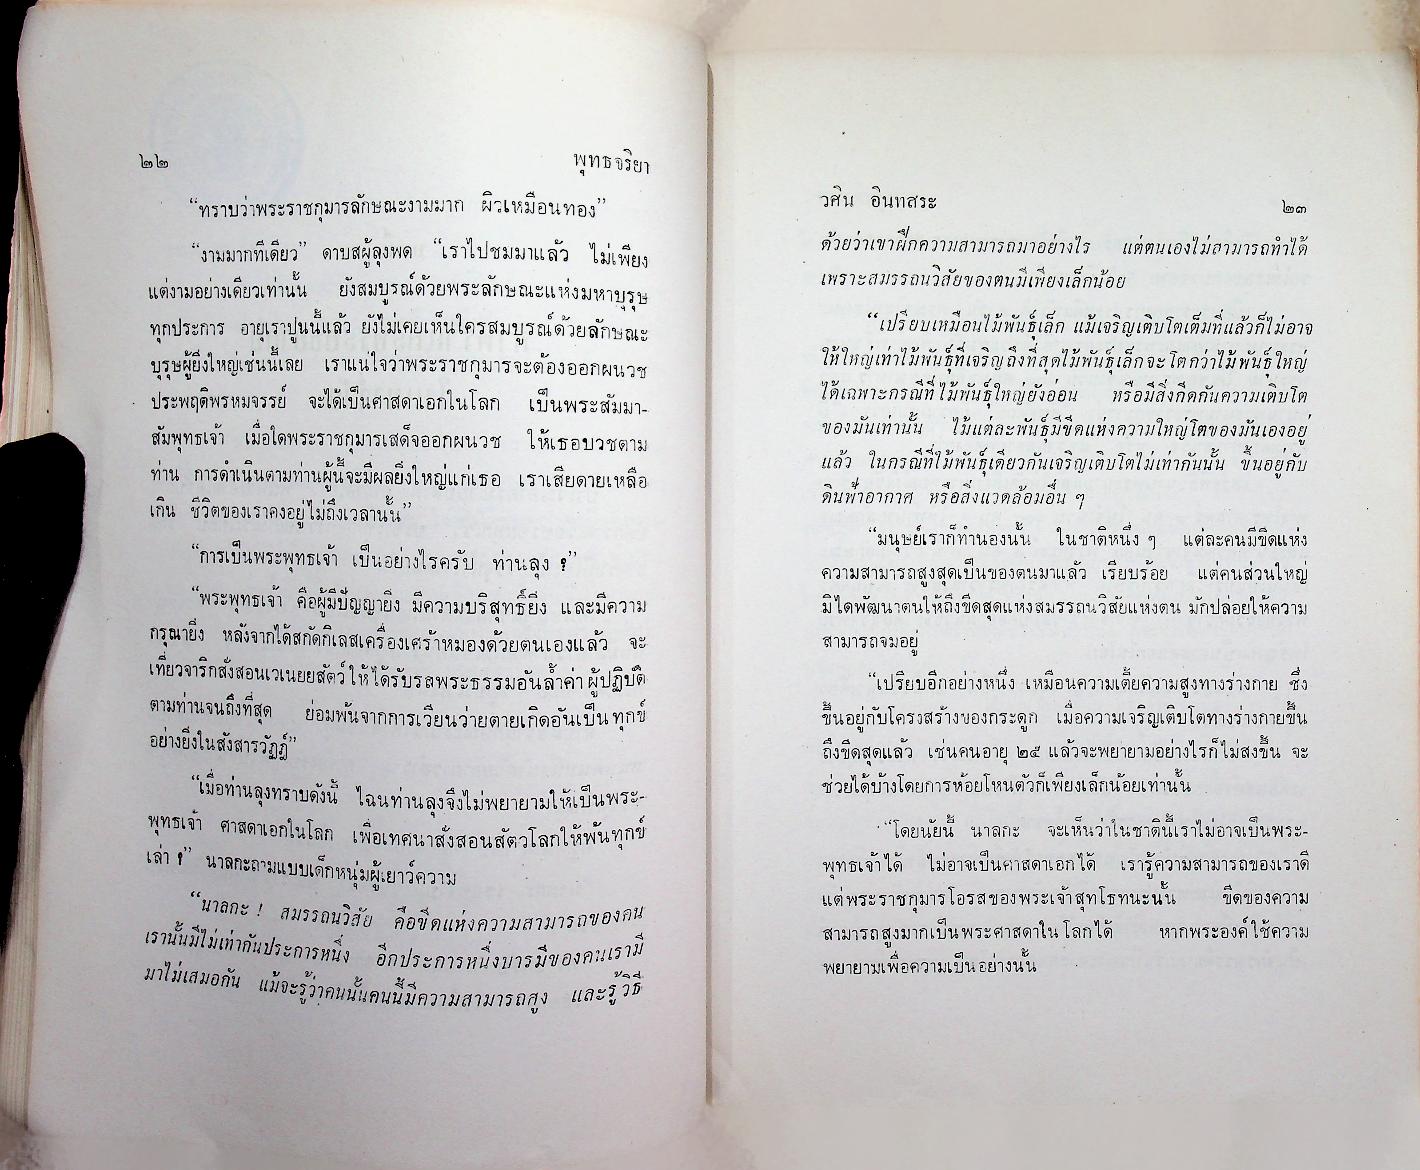 ๒๒ พุทธจริยา
“ทราบว่าพระราชกุมารลักษณะงามมาก ผิวเหมือนทอง”
“งามมากทีเดียว” ดาบสผู้ลุงพูด “เราไปชมมาแล้ว ไม่เพียง
แต่งามอย่างเดียวเท่านั้น ยังสมบูรณ์ด้วยพระลักษณะแห่งมหาบุรุษ
ทุกประการ อายุเราปูนนี้แล้ว ยังไม่เคยเห็นใครสมบูรณ์ด้วยลักษณะ
บุรุษผู้ยิ่งใหญ่เช่นนี้เลย เราแน่ใจว่าพระราชกุมารจะต้องออกผนวช
ประพฤติพรหมจรรย์ จะได้เป็นศาสดาเอกในโลก เป็นพระสัมมา-
สัมพุทธเจ้า เมื่อใดพระราชกุมารเสด็จออกผนวช ให้เธอบวชตาม
ท่าน การดำเนินตามท่านผู้นี้จะมีผลยิ่งใหญ่แก่เธอ เราเสียดายเหลือ
เกิน ชีวิตของเราคงอยู่ไม่ถึงเวลานั้น”
“การเป็นพระพุทธเจ้า เป็นอย่างไรครับ ท่านลุง ?”
“พระพุทธเจ้า คือผู้มีปัญญายิ่ง มีความบริสุทธิ์ยิ่ง และมีความ
กรุณายิ่ง หลังจากได้สกัดกิเลสเครื่องเศร้าหมองด้วยตนเองแล้ว จะ
เที่ยวจาริกสั่งสอนเวเนยยสัตว์ให้ได้รับรสพระธรรมอันล้ำค่า ผู้ปฏิบัติ
ตามท่านจนถึงที่สุด ย่อมพ้นจากการเวียนว่ายตายเกิดอันเป็นทุกข์
อย่างยิ่งในสังสารวัฏฏ์”
“เมื่อท่านลุงทราบดังนี้ ไฉนท่านลุงจึงไม่พยายามให้เป็นพระ-
พุทธเจ้า ศาสดาเอกในโลก เพื่อเทศนาสั่งสอนสัตวโลกให้พ้นทุกข์
เล่า ?” นาลกะถามแบบเด็กหนุ่มผู้เยาว์ความ
“นาลกะ ! สมรรถนวิสัย คือขีดแห่งความสามารถของคน
เรานั้นมีไม่เท่ากันประการหนึ่ง อีกประการหนึ่งบารมีของคนเรามี
มาไม่เสมอกัน แม้จะรู้ว่าคนนั้นคนนี้มีความสามารถสูง และรู้วิธี
วศิน อินทสระ ๒๓
ด้วยว่าเขาฝึกความสามารถมาอย่างไร แต่ตนเองไม่สามารถทำได้
เพราะสมรรถนวิสัยของตนมีเพียงเล็กน้อย
“เปรียบเหมือนไม้พันธุ์เล็ก แม้เจริญเติบโตเต็มที่แล้วก็ไม่อาจ
ให้ใหญ่เท่าไม้พันธุ์ที่เจริญถึงที่สุดไม้พันธุ์เล็กจะโตกว่าไม้พันธุ์ใหญ่
ได้เฉพาะกรณีที่ไม้พันธุ์ใหญ่ยังอ่อน หรือมีสิ่งกีดกันความเติบโต
ของมันเท่านั้น ไม้แต่ละพันธุ์มีขีดแห่งความใหญ่โตของมันเองอยู่
แล้ว ในกรณีที่ไม้พันธุ์เดียวกันเจริญเติบโตไม่เท่ากันนั้น ขึ้นอยู่กับ
ดินฟ้าอากาศ หรือสิ่งแวดล้อมอื่น ๆ
“มนุษย์เราก็ทำนองนั้น ในชาติหนึ่ง ๆ แต่ละคนมีขีดแห่ง
ความสามารถสูงสุดเป็นของตนมาแล้ว เรียบร้อย แต่คนส่วนใหญ่
มิได้พัฒนาตนให้ถึงขีดสุดแห่งสมรรถนวิสัยแห่งตน มักปล่อยให้ความ
สามารถจมอยู่
“เปรียบอีกอย่างหนึ่ง เหมือนความเตี้ยความสูงทางร่างกาย ซึ่ง
ขึ้นอยู่กับโครงสร้างของกระดูก เมื่อความเจริญเติบโตทางร่างกายขึ้น
ถึงขีดสุดแล้ว เช่นคนอายุ ๒๕ แล้วจะพยายามอย่างไรก็ไม่สูงขึ้น จะ
ช่วยได้บ้างโดยการห้อยโหนตัวก็เพียงเล็กน้อยเท่านั้น
“โดยนัยนี้ นาลกะ จะเห็นว่าในชาตินี้เราไม่อาจเป็นพระ-
พุทธเจ้าได้ ไม่อาจเป็นศาสดาเอกได้ เรารู้ความสามารถของเราดี
แต่พระราชกุมารโอรสของพระเจ้าสุทโธทนะนั้น ขีดของความ
สามารถสูงมากเป็นพระศาสดาในโลกได้ หากพระองค์ใช้ความ
พยายามเพื่อความเป็นอย่างนั้น